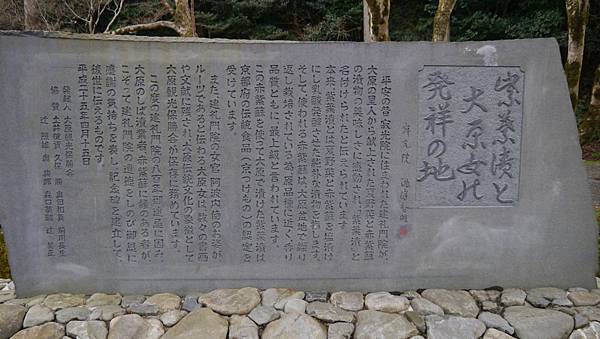 紫葉漬と
大原女の
発祥の地
寂光院
平安の昔寂光院に住まわれた建礼門院が、
大原の里人から献上された夏野菜と赤紫蘇
の漬物の美味しさに感動され「紫葉漬」と
名付けられたと伝えられています。
本来、紫葉漬とは夏野菜と赤紫蘇を塩漬け
にし乳酸発酵させた純朴な漬物を指します。
そして、使われる赤紫蘇は、大原盆地で繰り
返し栽培されている為、原品種に近く、香り
品質ともに、最上級と言われています。
この赤紫蘇を使って大原で漬けた紫葉漬は
京都府の伝統食品(京のつけもの)の認定を
受けています。
また、建礼門院の女官阿波内侍のお姿が
ルーツであると伝わる大原女は、数々の書画
や文献に残され、大原伝統文化の象徴として
大原観光協会などが保存に努めています。
この度の建礼門院の八百年御遠忌に因み、
大原のしば漬業者、赤紫蘇に縁のある者が、
こぞって建礼門院の遺徳をしのび御恩に
感謝の気持ちを表し、記念碑を建立して、
後世に伝えるものです。
平成二十五年四月十五日
発起人 大原観光保勝会